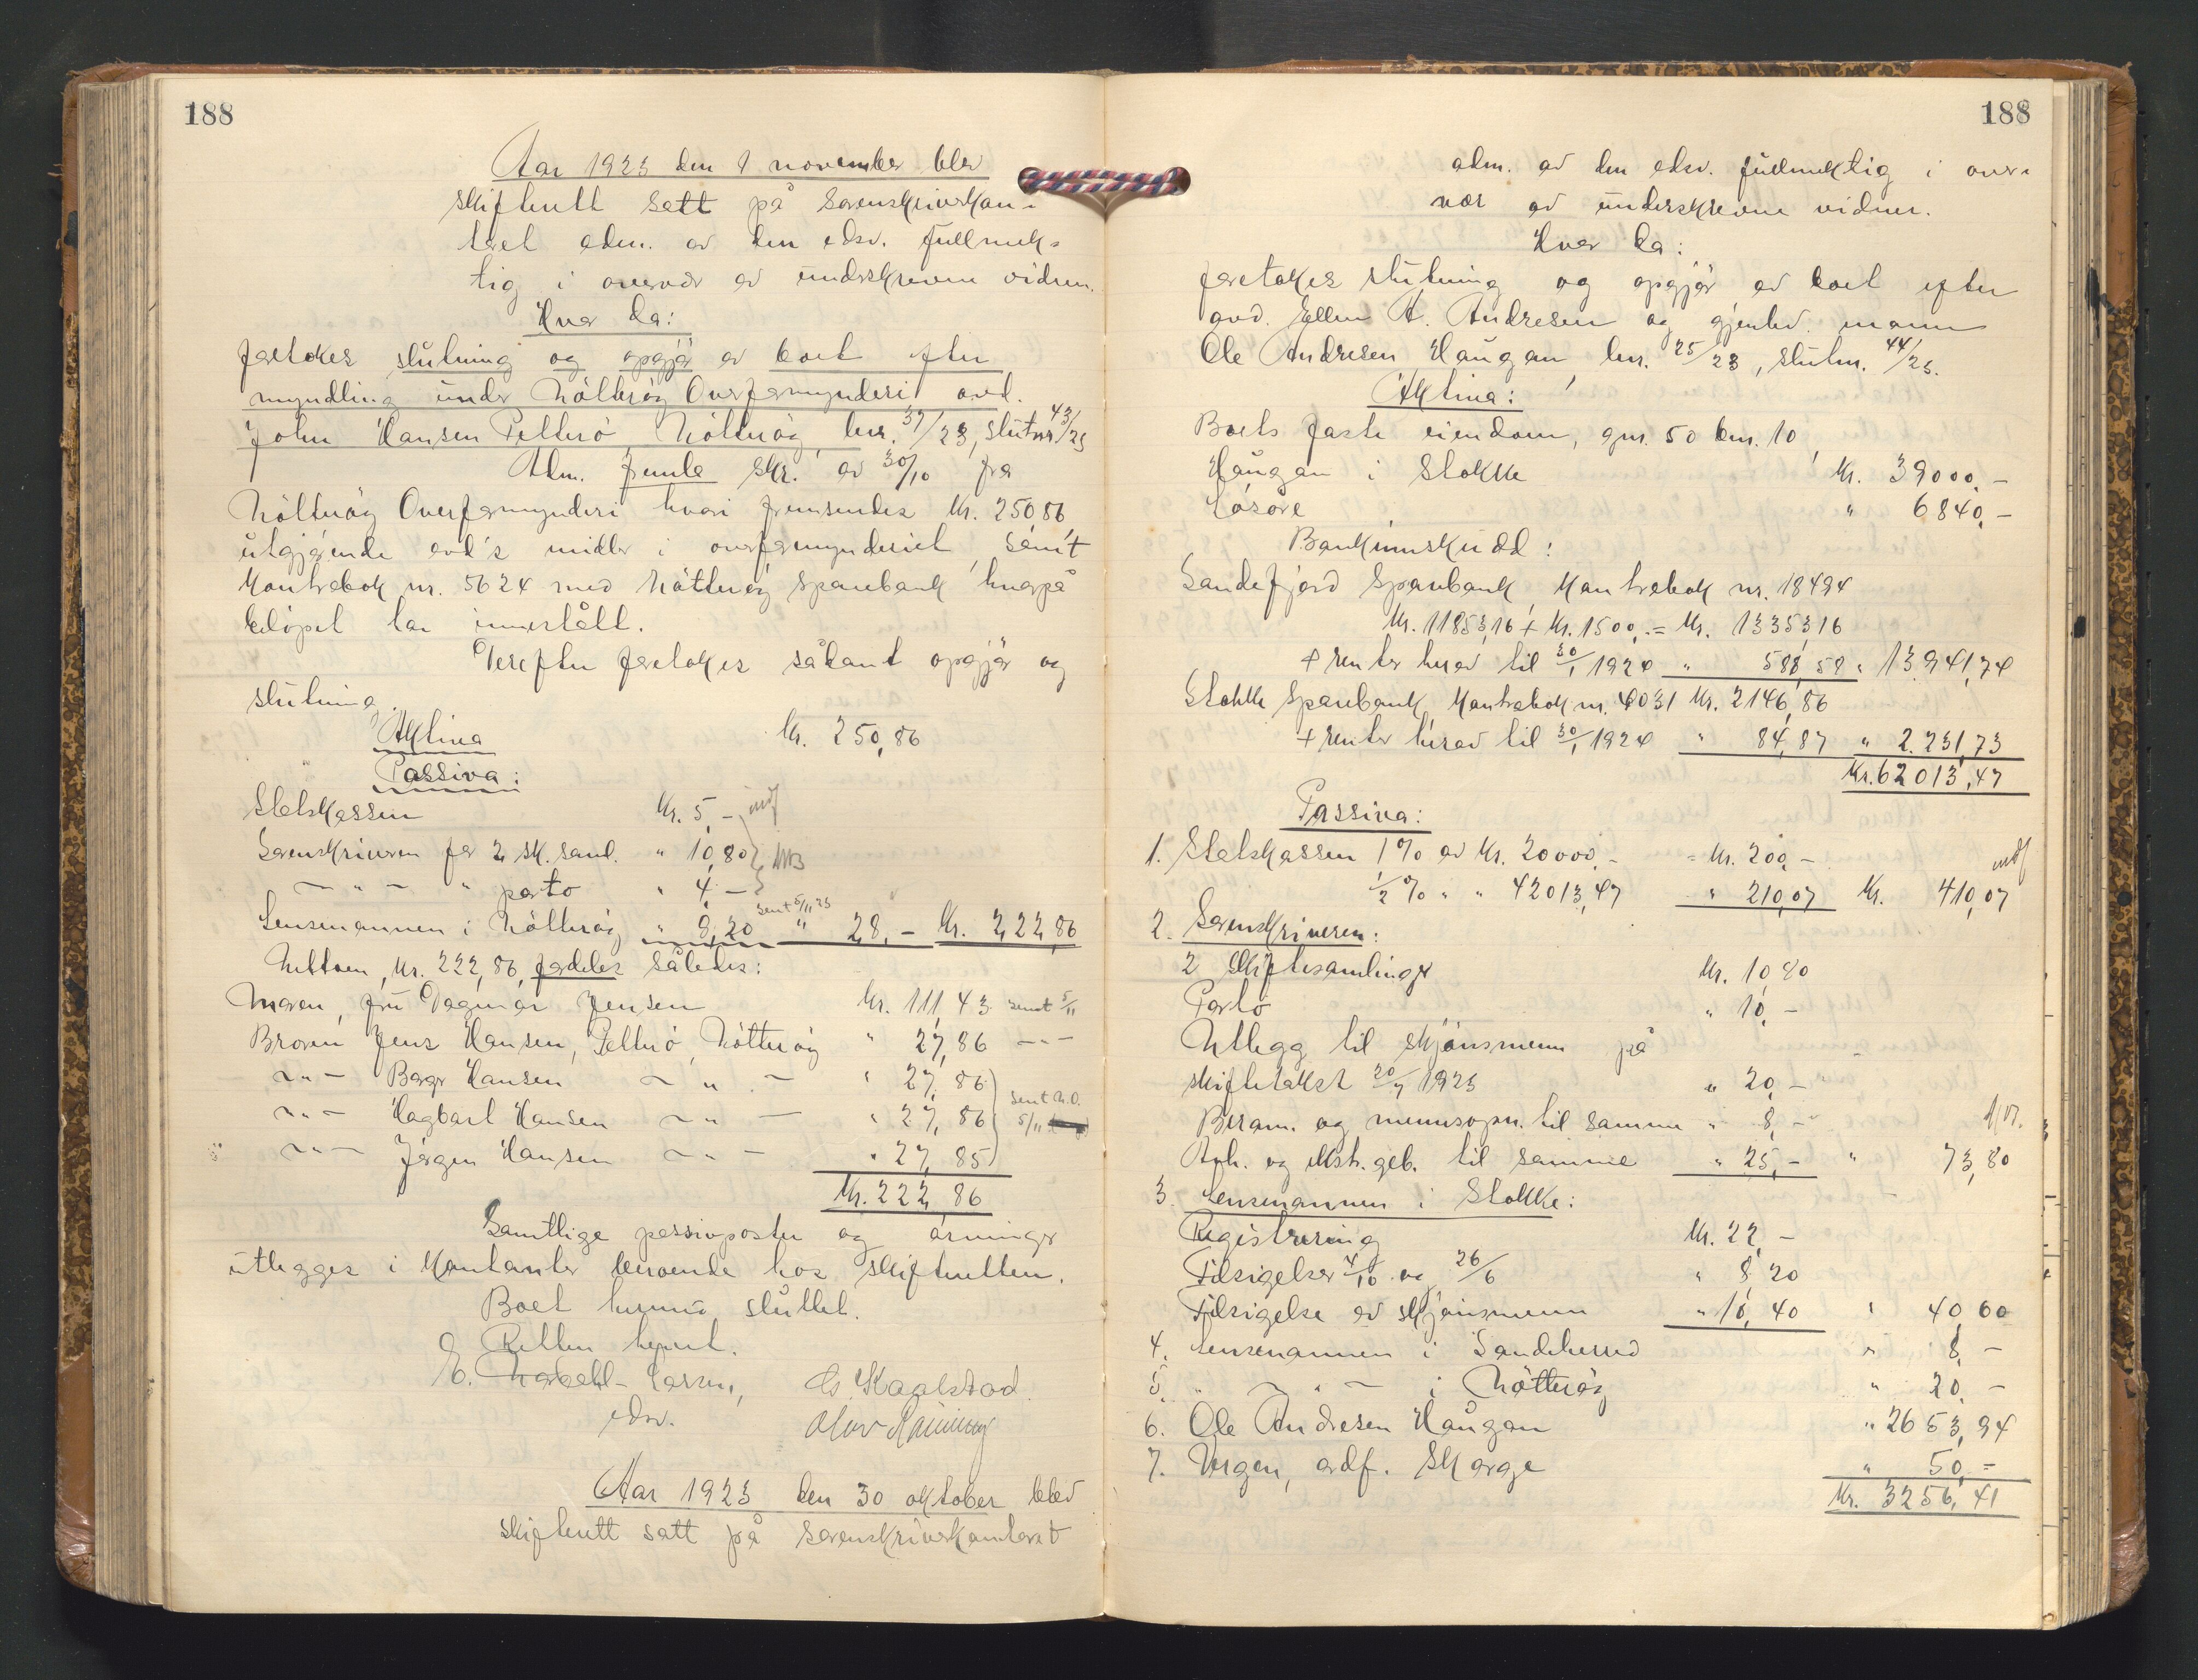 188
Aar 1923 den 1 november blev
skifterett satt på sorenskriverkon-
toret adm. av den edsv. fullmek-
tig i overvær av underskrevne vidner.
Hvor da:
foretokes slutning og opgjør av boet efter
myndling under Nøtterøy Overformynderi avd.
John Hansen Tellerø Nøtterøy, bnr. 37/23, slutnr 43/23
Adm. fremla skr. av 30/10 fra
Nøtterøy Overformynderi hvori fremsendes kr. 250,86
utgjørende avd's midler i overformynderiet, samt
kontrabok nr. 5624 med Nøtterøy Sparebank, hvorpå
beløpet har innestått.
Derefter foretokes sådant opgjør og
slutning.
Aktiva kr. 250,86
Passiva:
Statskassen kr. 5,-
Sorenskriveren for 2 sk.saml. " 10,80
— " — " porto " 4,-
Lensmannen i Nøtterøy " 8,20 sent 5/11 23 " 28,- kr. 222,86
Nettoen, kr. 222,86, fordeles således:
Moren, fru Dagmar Jensen kr. 111,43 sent 5/11
Broren Jens Hansen, Tellerø, Nøtterøy " 27,86 — " —
— " — Borgr Hansen — " — " 27,86
— " — Hagbart Hansen — " — " 27,86 sent N.O. 5/11
— " — Jørgen Hansen — " — " 27,85
kr. 222,86
Samtlige passivposter og arvninger
utlegges i kontanter beroende hos skifteretten.
Boet hermed sluttet.
Retten hevet.
E. Larsen,
edsv.
Aar 1923 den 30 oktober blev
skifterett satt på sorenskriverkontoret
188
adm. av den edsv. fullmektig i over-
vær av underskrevne vidner.
Hvor da:
foretokes slutning og opgjør av boet efter
avd. Ellen A. Andresen og gjenlev. mann
Ole Andresen Haugan, bnr. 25/23, slutnr. 44/23.
Aktiva:
Boets faste eiendom, gnr. 50 bnr. 10,
Haugan i Stokke kr. 39000,-
Løsøre " 6840,-
Bankinnskudd:
Sandefjord Sparebank kontrabok nr. 18494
kr. 11853,16 + kr. 1500,- = kr. 13353,16
+ renter herav til 30/1 1924 " 588,58 " 13.941,74
Stokke Sparebank, kontrabok nr. 4031 kr. 2146,86
+ renter herav til 30/1 1924 " 84,87 " 2.231,73
kr. 62013,47
Passiva:
1. Statskassen 1% av kr. 20000,- = kr. 200,-
1/2% " " 42013,47 " 210,07 kr. 410,07
2. Sorenskriveren:
2 skiftesamlinger kr. 10,80
Porto " 10,-
Utlegg til skjønsmenn på
skiftetakst 20/7 1923 " 20,-
Beram. og mennsopn. til samme " 8,-
Avh. og ekstr.geb. til samme " 25,- " 73,80
3. Lensmannen i Stokke:
Registrering kr. 22,-
Tilsigelser 4/10 og 26/6 " 8,20
Tilsigelse av skjønsmenn " 10,40 " 40,60
4. Lensmannen i Sandeherred " 8,-
5. " — " — i Nøtterøy " 20,-
6. Ole Andresen Haugan " 2653,94
7. Vergen, ordf. Skorge " 50,-
kr. 3256,41